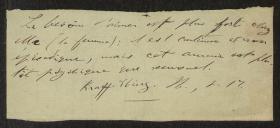 Le besoin d'aimer est plus fort chez
elle (la femme); il est continu et non
épisodique, mais cet amour est plu-
tôt psychique que sensuel.
Krafft-Ebing.